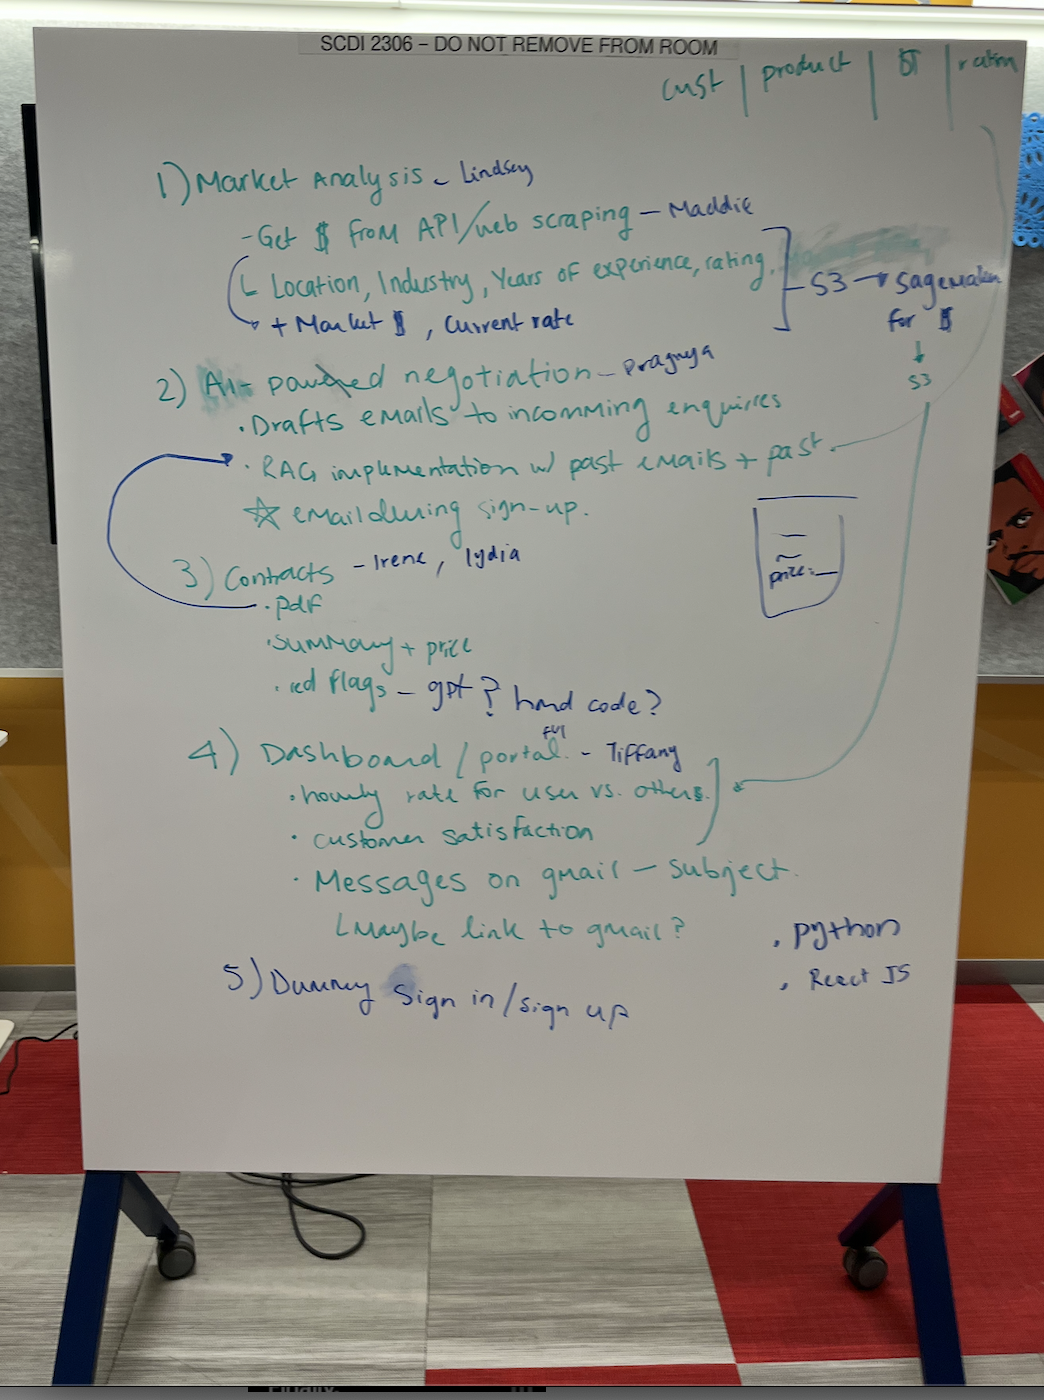 SCDI 2306 – DO NOT REMOVE FROM ROOM
cust | product | | 
1) Market Analysis - Lindsey
- Get $ from API/web scraping - Maddie
Location, Industry, Years of experience, rating,
+ Market $, Current rate
S3 → Sagemaker
for $
↓
S3
2) AI- powered negotiation - Pragnya
• Drafts emails to incomming enquires
• RAG implementation w/ past emails + past
☆ email during sign-up.
3) Contracts - Irene, lydia
• pdf
• summary + price
• red flags - gpt? hard code?
price: __
4) Dashboard / portal - Tiffany
• hourly rate for user vs. others.
• customer satisfaction
• Messages on gmail - Subject.
Maybe link to gmail?
• python
• React JS
5) Dummy Sign in/sign up